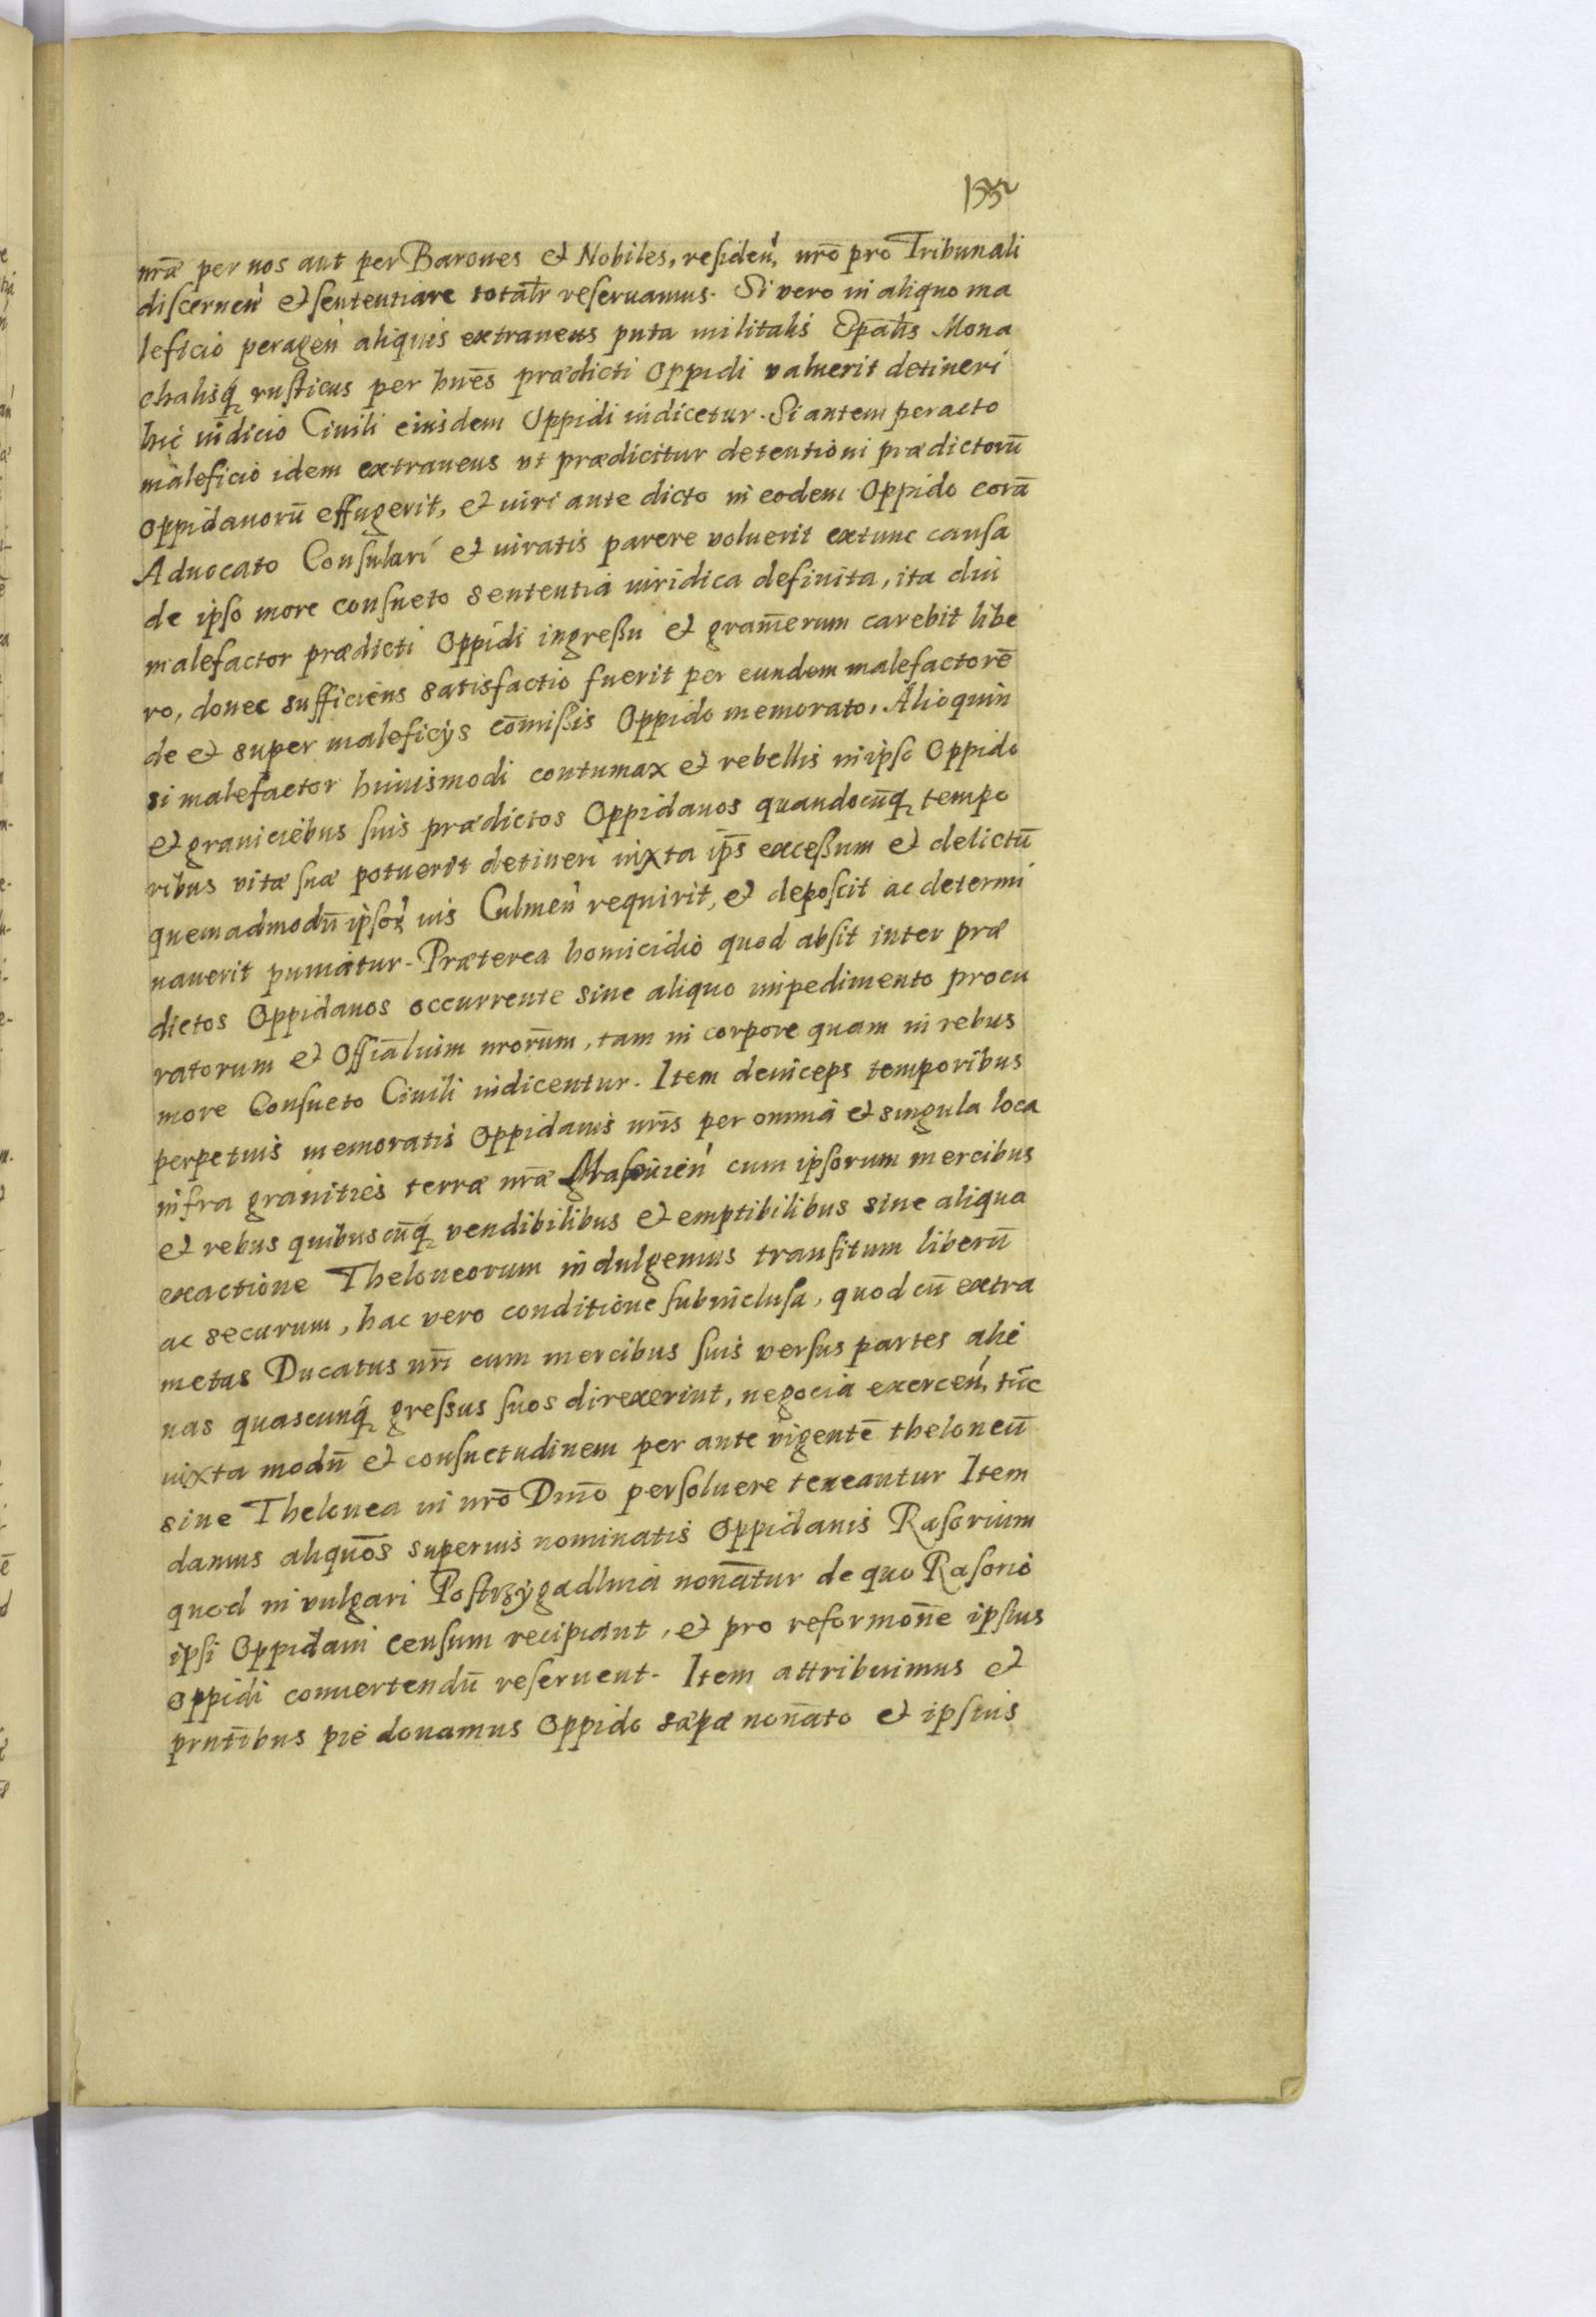 nrã per nos aut per Barones et Nobiles, residen̕, nrõ pro Tribunali
discernen̕ et sententiare totalr̃ reseruamus. Si vero in aliquo ma
leficio peragen̕ aliquis extraneus puta militalis Ep̃alis Mona
chalisq́ȝ rusticus per hñes prædicti Oppidi valuerit detineri
hic iudicio Ciuili eiusdem Oppidi iudicetur. Si autem peracto
maleficio idem extraneus ut prædicitur detentioni prædictorũ
oppidanorũ effugerit, et iuri ante dicto in eodem Oppido corã
Aduocato Consulari et iuratis parere voluerit extunc causa
de ipso more consueto sententia iuridica definita, ita diu
malefactor prædicti Oppidi ingreßu et gram̃erum carebit libe
ro, donec sufficiens satisfactio fuerit per eundem malefactorẽ
de et super maleficÿs cõmißis Oppido memorato. Alioquin
si malefactor huiusmodi contumax et rebellis in ipso Oppido
et graniciebus suis prædictos Oppidanos quandocũqȝ tempo
ribus vitæ suæ potuerit detineri iuxta ip̃s exceßum et delictũ
quemadmodũ ipsoꝝ ius Culmen̕ requirit, et deposcit ac determi
nauerit puniatur. Præterea homicidio quod absit inter præ
dictos Oppidanos occurrente sine aliquo impedimento procu
ratorum et Offiãluim nrorũm, tam in corpore quam in rebus
more Consueto Ciuili iudicentur. Item deinceps temporibus
perpetuis memoratis Oppidanis nrĩs per omnia et singula loca
infra granities terræ nrã Masouien̕ cum ipsorum mercibus
et rebus quibuscũq́ȝ vendibilibus et emptibilibus sine aliqua
exactione Theloneorum indulgemus transitum liberũ
ac securum, hac vero conditione subinclusa, quod cũ extra
metas Ducatus nrĩ cum mercibus suis versus partes alie
nas quascunq́ȝ greßus suos direxerint, negocia exercen̕, tũc
iuxta modũ et consuetudinem per ante vigentẽ theloneũ
siue Thelonea in nrõ Dmõ persoluere teneantur Item
damus aliquõs superius nominatis Oppidanis Rasorium
quod in vulgari Postrzÿgadlnia nonãtur de quo Rasorio
ipsi Oppidani censum recipiant, et pro reformoñe ipsius
oppidi conuertendũ reseruent. Item attribuimus et
prntĩbus pie donamus Oppido sæpæ nonãto et ipsius